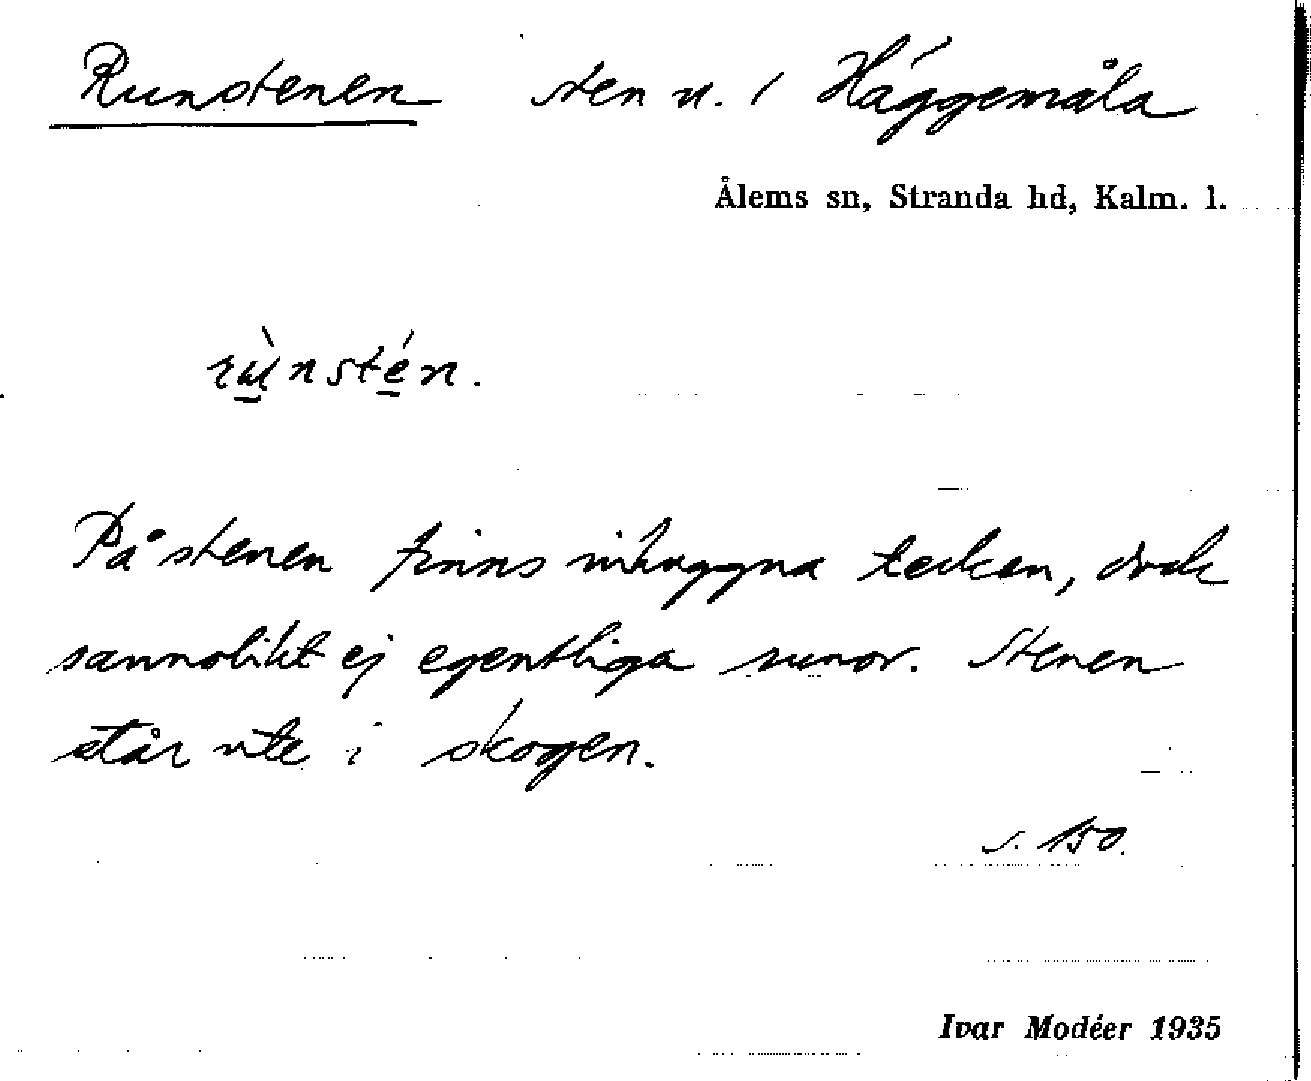 Runstenen sten n. i Häggemåla
Ålems sn, Stranda hd, Kalm. l.
rùnstén.
På stenen finns inhuggna tecken, dock
sannolikt ej egentliga runor. Stenen
står ute i skogen.
s. 150.
Ivar Modéer 1935